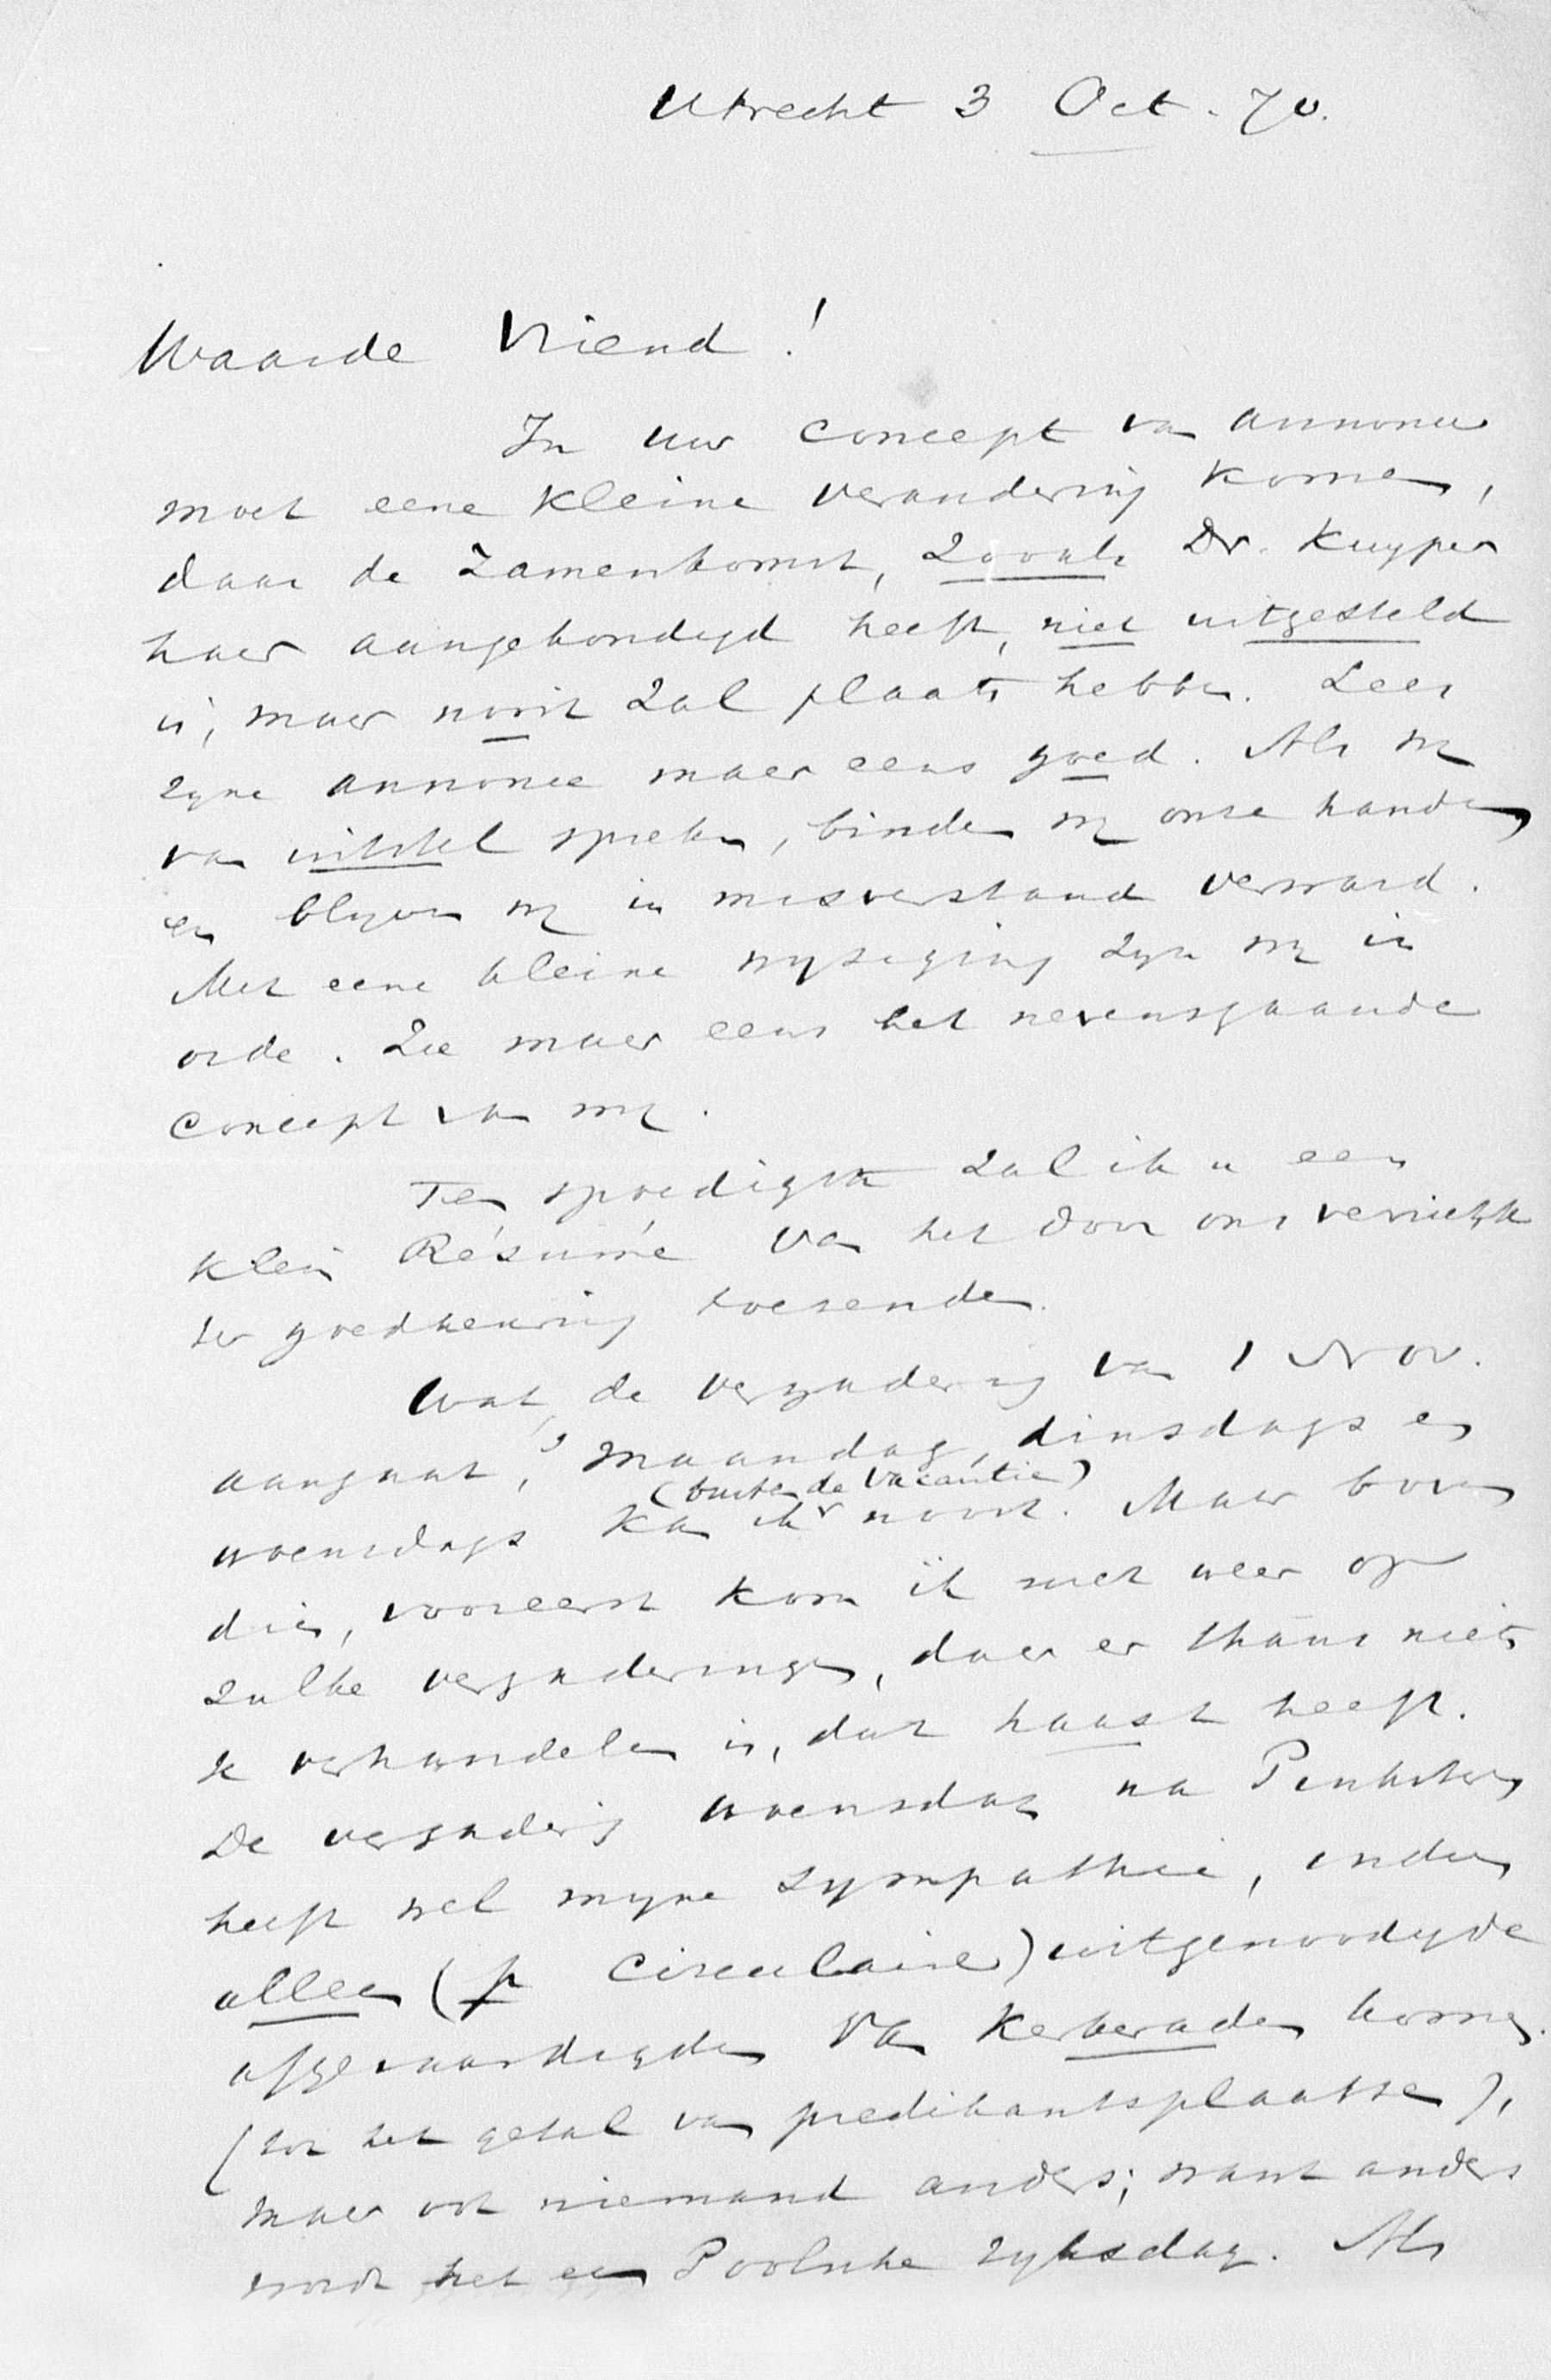 Utrecht 3 Oct. 70.
Waarde Vriend!
In uw concept van annonce
moet eene kleine verandering komen,
daar de Zamenkomst, zooals Dr. Kuyper
haar aangekondigd heeft, niet uitgesteld
is, maar nooit zal plaats hebben. Lees
zyne annonce maar eens goed. Als wy
van uitstel spreken, binden wy onze handen
en blyven wy in misverstand verward.
Met eene kleine wyziging zyn wy in
orde. Zie maar eens het nevensgaande
concept van my.
Ten spoedigste zal ik u een
klein Résumé van het door ons verrichte
ter goedkeuring toezenden.
Wat de vergadering van 1 Nov.
aangaat, 's maandag, dinsdags en
(buiten de vacantie)
woensdags kan ik nooit. Maar boven
dien, vooreerst kom ik niet weer op
zulke vergaderingen, daar er thans niets
te verhandelen is, dat haast heeft.
De vergadering woensdag na Pinksteren
heeft wel myne sympathie, indien
alleen (p circulaire) uitgenoodigde
afgevaardigden van Kerkeraden komen
(tot het getal van predikantsplaatsen),
maar ook niemand anders; want anders
wordt het een Poolsche ryksdag. Als